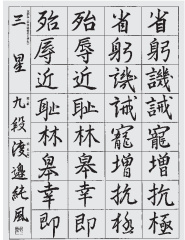 省躬譏誡寵增抗極
省躬譏誡寵增抗極
殆辱近耻林皋幸即
殆辱近耻林皋幸即
三星 九段 渡邊純風